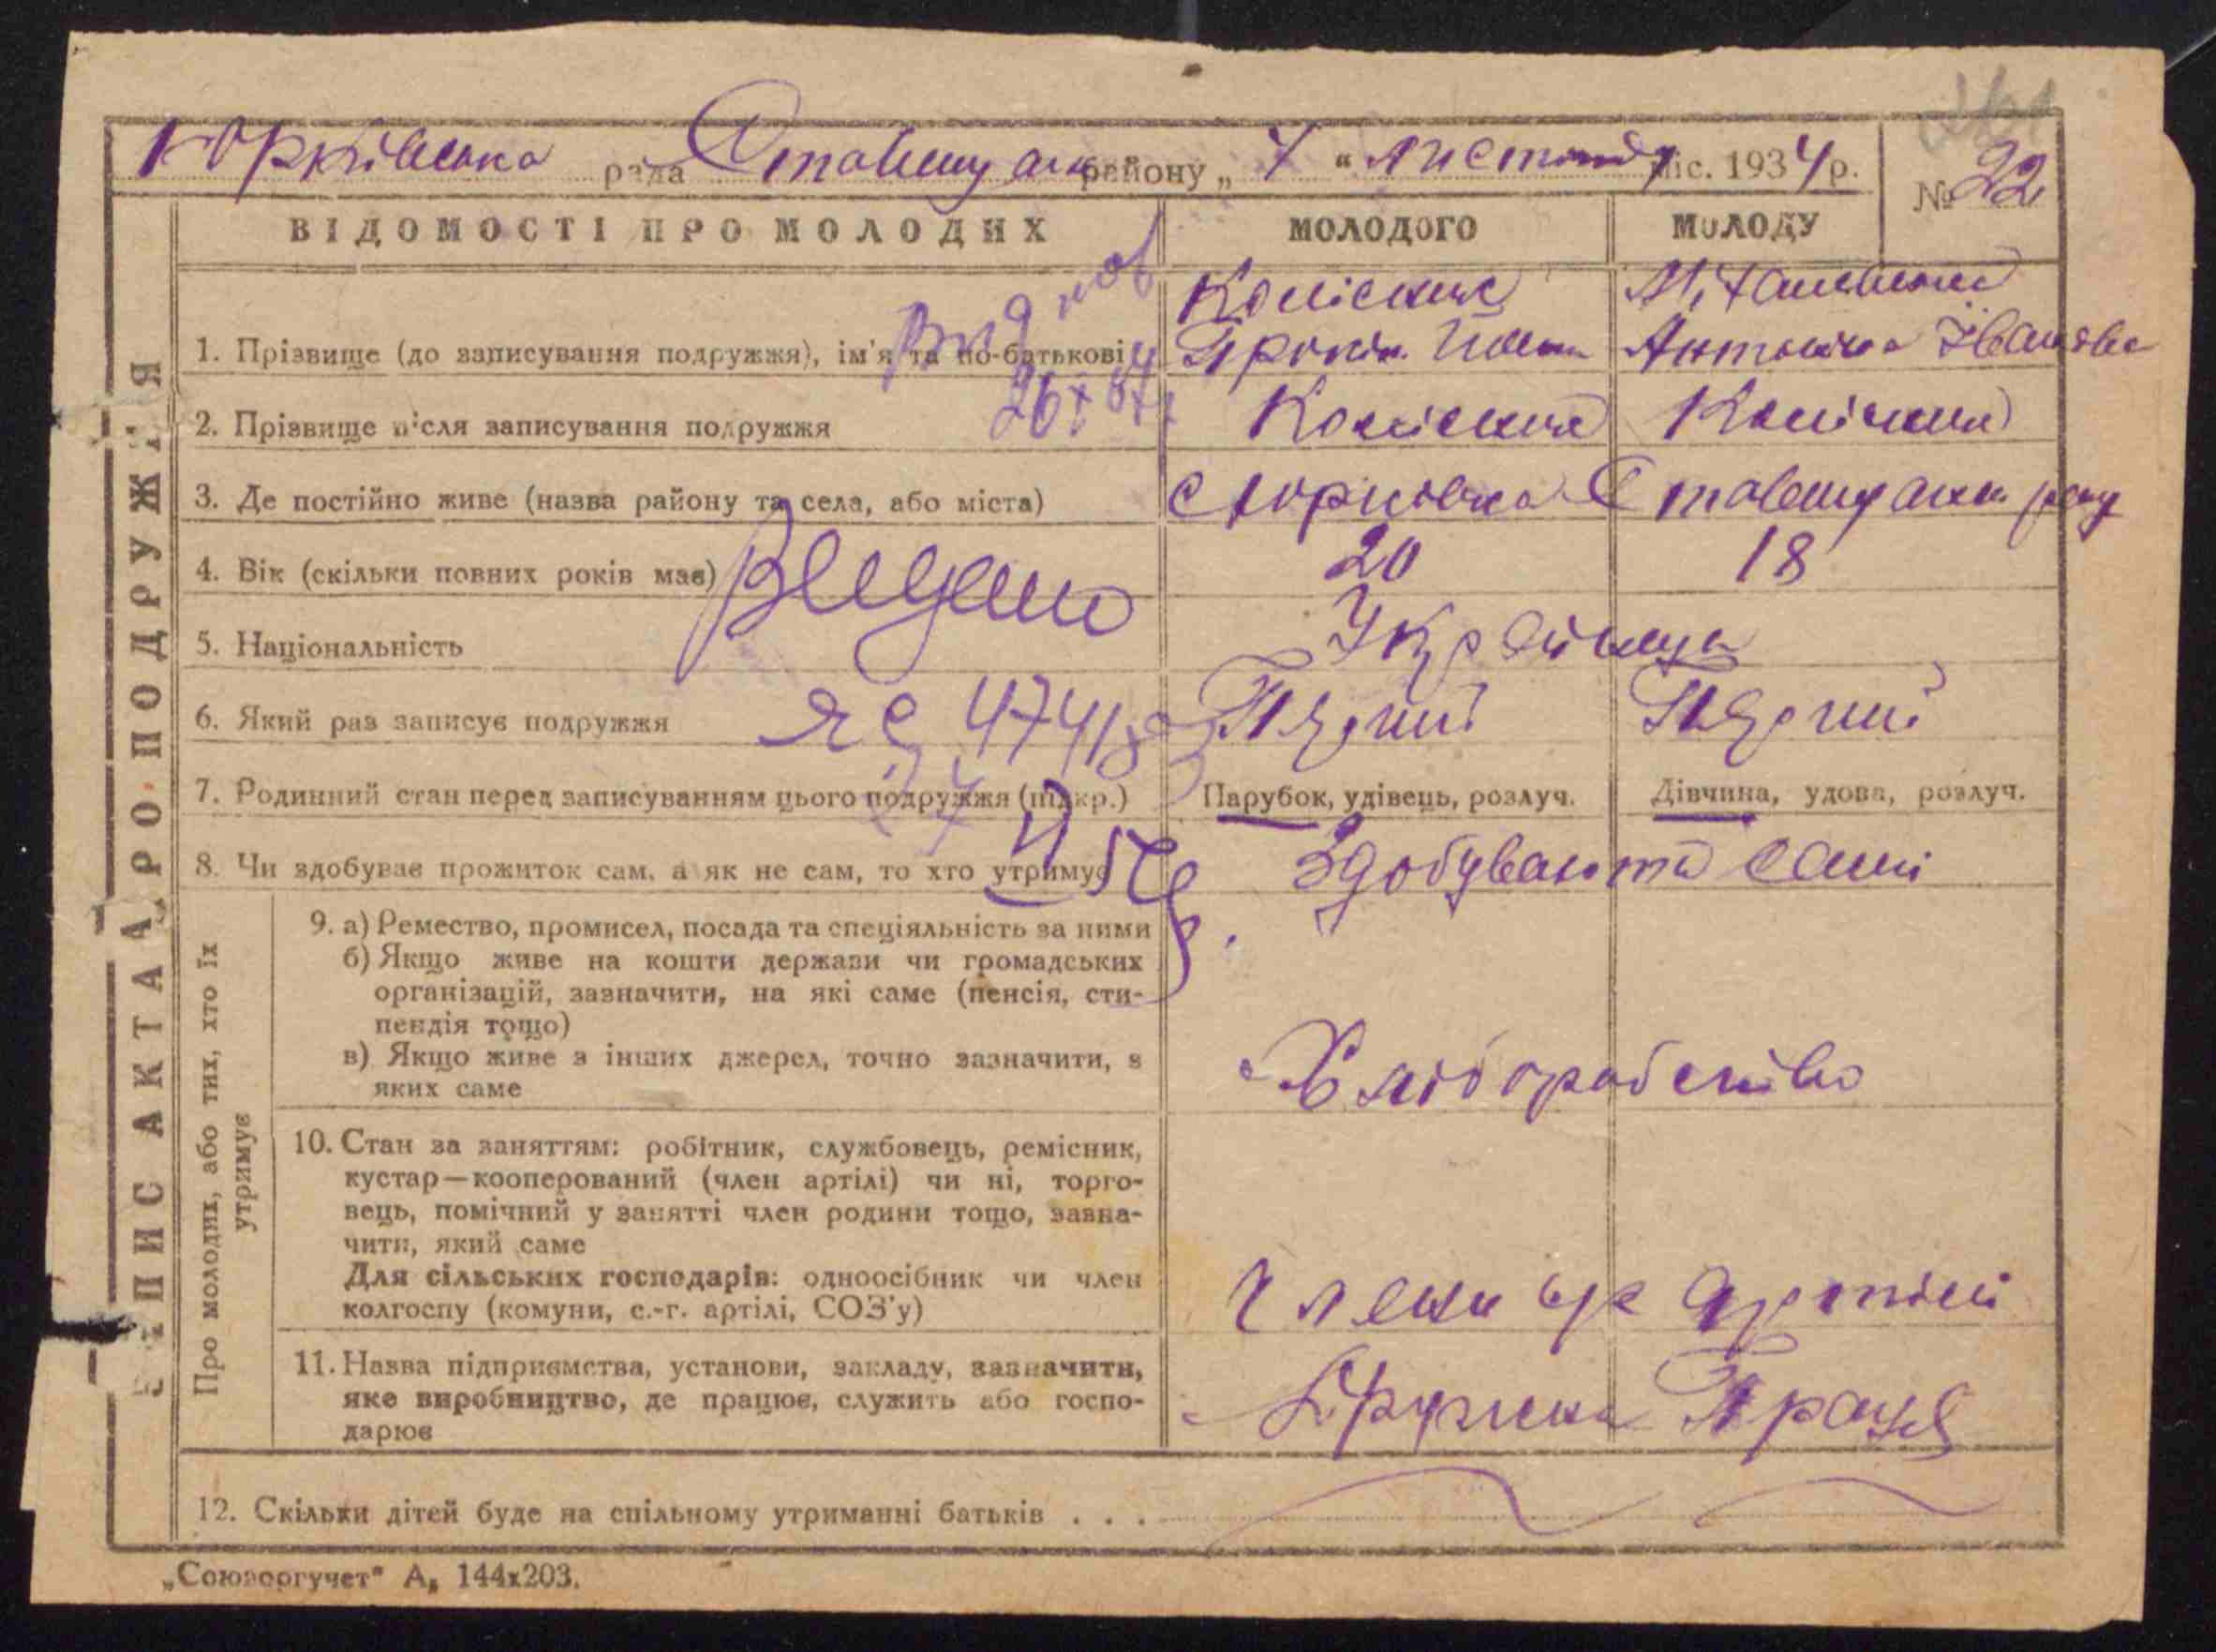 Юрківська рада Ставищанськ району „ 7 “ листопаду міс. 1934 р.
№ 22
ЗАПИС АКТА ПРО ПОДРУЖЖЯ
ВІДОМОСТІ ПРО МОЛОДИХ МОЛОДОГО МОЛОДУ
1. Прізвище (до записування подружжя), ім'я та по-батькові
Антоніна Іванова
2. Прізвище після записування подружжя
3. Де постійно живе (назва району та села, або міста) с Юрковка Ставищанськ району
4. Вік (скільки повних років має) 20 18
Видано
5. Національність Українці
6. Який раз записує подружжя Перший Перший
7. Родинний стан перед записуванням цього подружжя (підкр.) Парубок, удівець, розлуч. Дівчина, удова, розлуч.
8. Чи здобуває прожиток сам, а як не сам, то хто утримує Здобувають сами
Про молодих, або тих, хто їх утримує
9. а) Ремество, промисел, посада та спеціяльність за ними
б) Якщо живе на кошти держави чи громадських
організацій, зазначити, на які саме (пенсія, сти-
пендія тощо)
в) Якщо живе з інших джерел, точно зазначити, з
яких саме
Хліборобство
10. Стан за заняттям: робітник, службовець, ремісник,
кустар—кооперований (член артілі) чи ні, торго-
вець, помічний у занятті член родини тощо, зазна-
чити, який саме
Для сільських господарів: одноосібник чи член
колгоспу (комуни, с.-г. артілі, СОЗ'у)
Члени с/г Артілі
11. Назва підприємства, установи, закладу, зазначити,
яке виробництво, де працює, служить або госпо-
дарює
Праця
12. Скільки дітей буде на спільному утриманні батьків . . .
„Союзоргучет" А₅ 144х203.